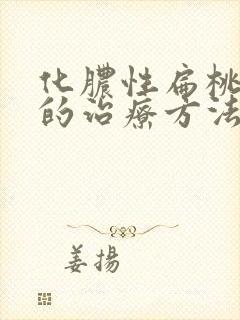 化膿性扁桃
的治療方法
姜揚